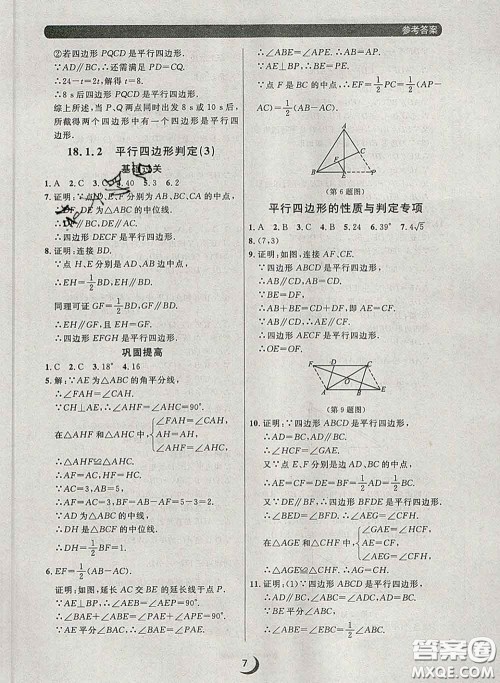 参考答案
②若四边形PQCD是平行四边形.
∵AD∥BC,∴还需满足PD=CQ.
∴24-t=2t,解得t=8.
∴8 s后四边形PQCD是平行四边形.
综上所述,当P、Q两点同时出发8 s或10 s后,
所截得两个四边形中有一个四边形是平行四
边形.
18.1.2 平行四边形判定(3)
1.A 2.C
5.3 6.2
7.证明:∵D、E为AB、CA的中点,
∴DF、DE为△ABC的中位线.
∴四边形DECF是平行四边形.
8.证明:连接BD.
∵点H、E分别是AD、AB的中点,
∴EH=1/2BD,EH∥BD.
同理可证GF=1/2BD,GF∥BD.
∴EH∥GF,且EH=GF.
∴四边形EFGH是平行四边形.
巩固提高
1.C 2.C 3.18 4.16
5.解:∵AE为△ABC的角平分线,
∴∠FAH=∠CAH.
∵CH⊥AE,∴∠AHF=∠AHC=90°.
在△AHF和△AHC中{∠FAH=∠CAH, AH=AH, ∠AHF=∠AHC,
∴△AHF≌△AHC.
∴AF=AC,HF=HC.
∵AC=3,AB=5,
∴AF=AC=3,BF=AB-AF=5-3=2.
∵AD为△ABC的中线,
∴DH是△BCF的中位线.
∴DH=1/2BF=1.
6.EF=1/2(AB-AC).
证明:如图,延长AC交BE的延长线于点P.
∵AE⊥BP,∴∠AEP=∠AEB=90°.
∵AE平分∠BAC,∴∠BAE=∠PAE.
∴∠ABE=∠APE.∴AB=AP.
∵AE⊥BP,∴BE=PE.
∵点F是BC的中点,∴BF=FC.
∴EF=1/2PC=1/2(AP-AC)=1/2(AB-AC).
(第6题图)
平行四边形的性质与判定专项
1.A 2.B 3.C 4.C 5.24 6.39° 7.4√5
8.(7,3)
9.证明:如图,连接AF、CE.
∵四边形ABCD是平行四边形,
∴AB∥CD,AB=CD.
又∵AE=CF,
∴AB+AE=CD+DF,即AE=CF.
∵AB∥CD,∴AE∥CF.
∴四边形AECF是平行四边形.
∴OE=OF.
(第9题图)
10.证明:∵四边形ABCD是平行四边形,
∴AD∥BC,AD=BC.
∴∠EAG=∠FCH.
又∵点E、F分别是边AD、BC的中点,
∴AE=DE=1/2AD,CF=BF=1/2BC.
∴AE=CF,DE∥BF,DE=BF.
又∵四边形BFDE是平行四边形.
∴∠AEG=∠CFH.
在△AGE和△CHF中{∠GAE=∠HCF, AE=CF, ∠AEG=∠CFH,
∴△AGE≌△CHF(ASA).∴AG=CH.
11.证明:(1)∵四边形ABCD是平行四边形,
∴AD∥BC,∠BAD=∠BCD.
∵AE平分∠BAD,CF平分∠BCD,
7
答案圈
MXQE.COM